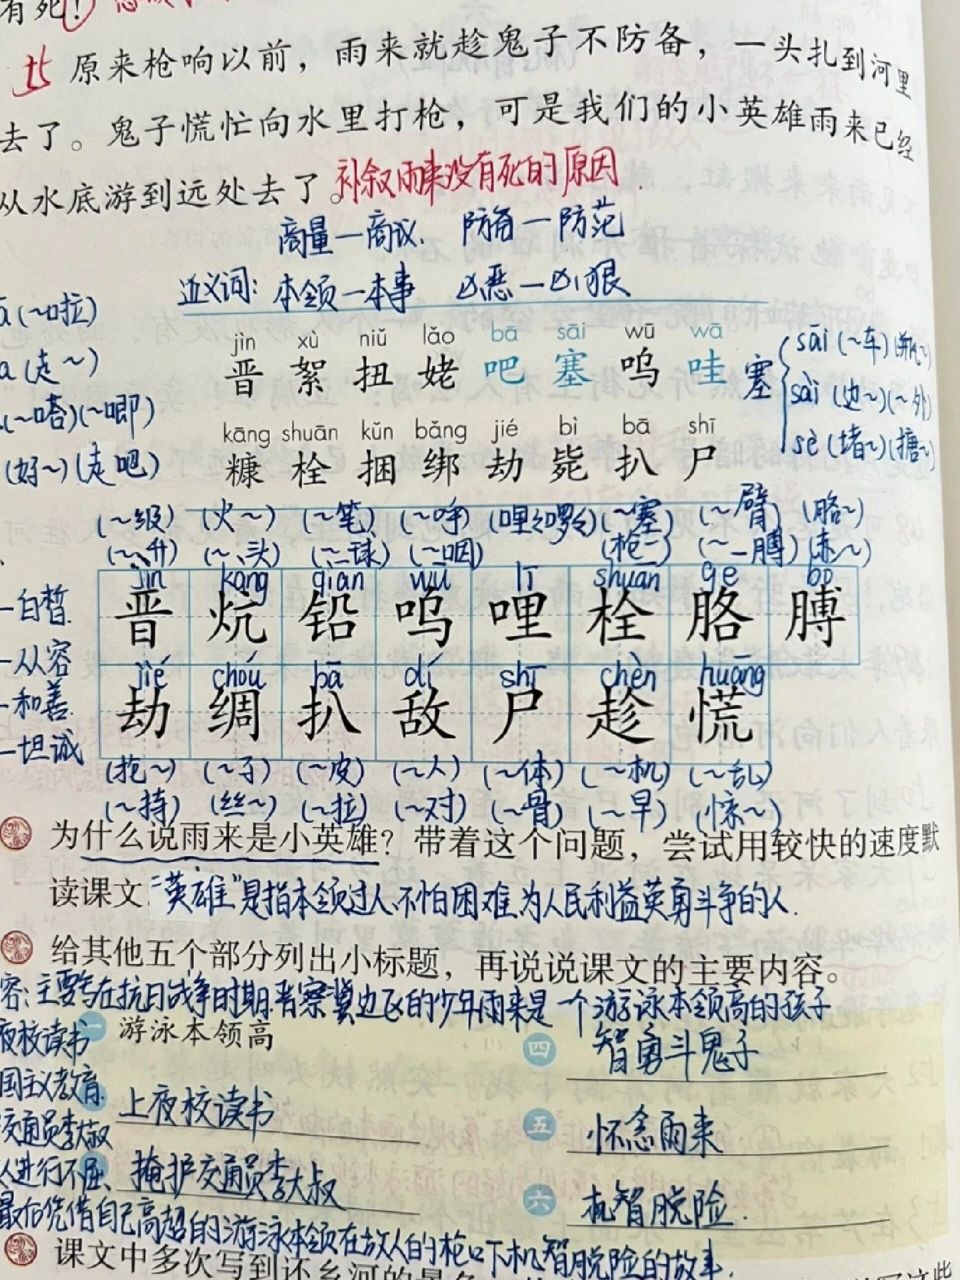 有死！
原来枪响以前，雨来就趁鬼子不防备，一头扎到河里
去了。鬼子慌忙向水里打枪，可是我们的小英雄雨来已经
从水底游到远处去了。补叙雨来没有死的原因.
商量—商议. 防备—防范
近义词：本领—本事 凶恶—凶狠
(~啦)
jìn xù niǔ lǎo bā sāi wū wā
晋 絮 扭 姥 吧 塞 呜 哇
塞 sāi (~车)
(走~)
sài (边~)(~外)
(~嗒)(~唧)
sè (堵~)(搪~)
kāng shuān kǔn bǎng jié bì bā shī
糠 栓 捆 绑 劫 毙 扒 尸
(好~)(走吧)
(~级) (火~) (~笔) (~呼) (哩~啰~) (~塞) (~臂) (胳~)
(~升) (~头) (~球) (~咽) (枪~) (~膊) (赤~)
jìn kàng qiān wū lī shuān gē bo
晋 炕 铅 呜 哩 栓 胳 膊
—白皙.
—从容
—和善.
—坦诚
jié chóu bā dí shī chèn huāng
劫 绸 扒 敌 尸 趁 慌
(抢~) (~子) (~皮) (~人) (~体) (~机) (~乱)
(~持) (丝~) (~拉) (~对) (~骨) (~早) (惊~)
为什么说雨来是小英雄？带着这个问题，尝试用较快的速度默
读课文 “英雄”是指本领过人,不怕困难,为人民利益英勇斗争的人.
给其他五个部分列出小标题，再说说课文的主要内容。
容：主要写在抗日战争时期晋察冀边区的少年雨来是一个游泳本领高的孩子
夜校读书
一 游泳本领高
四 智勇斗鬼子
国主义教育.
上夜校读书
五 怀念雨来
交通员李大叔
掩护交通员李大叔
人进行不屈
六 机智脱险.
最后凭借自己高超的游泳本领在敌人的枪口下机智脱险的故事.
课文中多次写到还乡河的景色